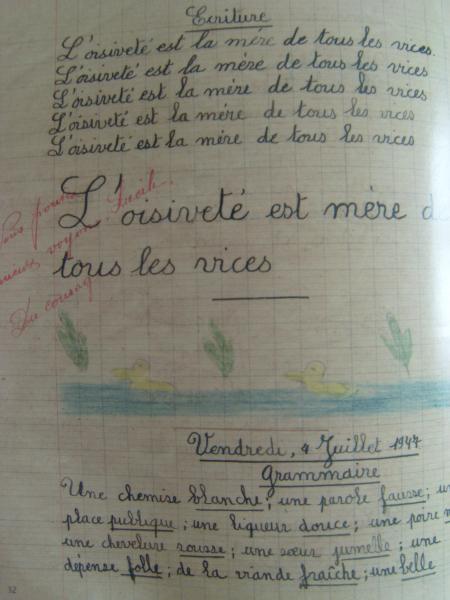 Ecriture
L'oisiveté est la mére de tous les vices.
L'oisiveté est la mère de tous les vices
L'oisiveté est la mère de tous les vices
L'oisiveté est la mére de tous les vices
L'oisiveté est la mère de tous les vices
L'oisiveté est mère de
tous les vices
mieux voyons Lucile.
Du courage
Vendredi, 4 Juillet 1947
Grammaire
Une chemise blanche; une parole fausse;
place publique; une liqueur douce; une poire
une chevelure rousse; une sœur jumelle; une
dépense folle; de la viande fraîche; une belle
32